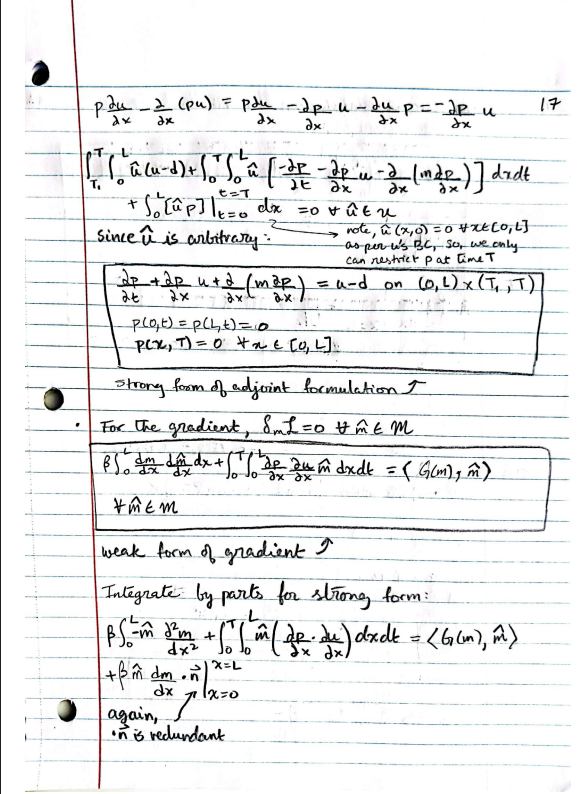 17
p ∂u/∂x - ∂/∂x (pu) = p ∂u/∂x - ∂p/∂x u - ∂u/∂x p = -∂p/∂x u
∫_{T₁}^{T} ∫_0^L û(u-d) + ∫_0^T ∫_0^L û [-∂p/∂t - ∂p/∂x u - ∂/∂x (m ∂p/∂x)] dxdt
+ ∫_0^L [ûp]|_{t=0}^{t=T} dx = 0 ∀ û ∈ U
→ note, û(x,0) = 0 ∀x∈[0,L]
as per u's BC, so, we only
can restrict p at time T
Since û is arbitrary:
∂p/∂t + ∂p/∂x u + ∂/∂x (m ∂p/∂x) = u-d on (0,L) × (T₁,T)
p(0,t) = p(L,t) = 0
p(x,T) = 0 ∀ x ∈ [0,L]
strong form of adjoint formulation ↑
• For the gradient, δ_m L = 0 ∀ m̂ ∈ M
β∫_0^L dm/dx dm̂/dx dx + ∫_0^T ∫_0^L ∂p/∂x ∂u/∂x m̂ dxdt = ⟨G(m), m̂⟩
∀ m̂ ∈ M
weak form of gradient ↑
Integrate by parts for strong form:
β∫_0^L -m̂ d²m/dx² + ∫_0^T ∫_0^L m̂ (∂p/∂x · ∂u/∂x) dxdt = ⟨G(m), m̂⟩
+ β m̂ dm/dx · n⃗ |_{x=0}^{x=L}
again,
·n⃗ is redundant